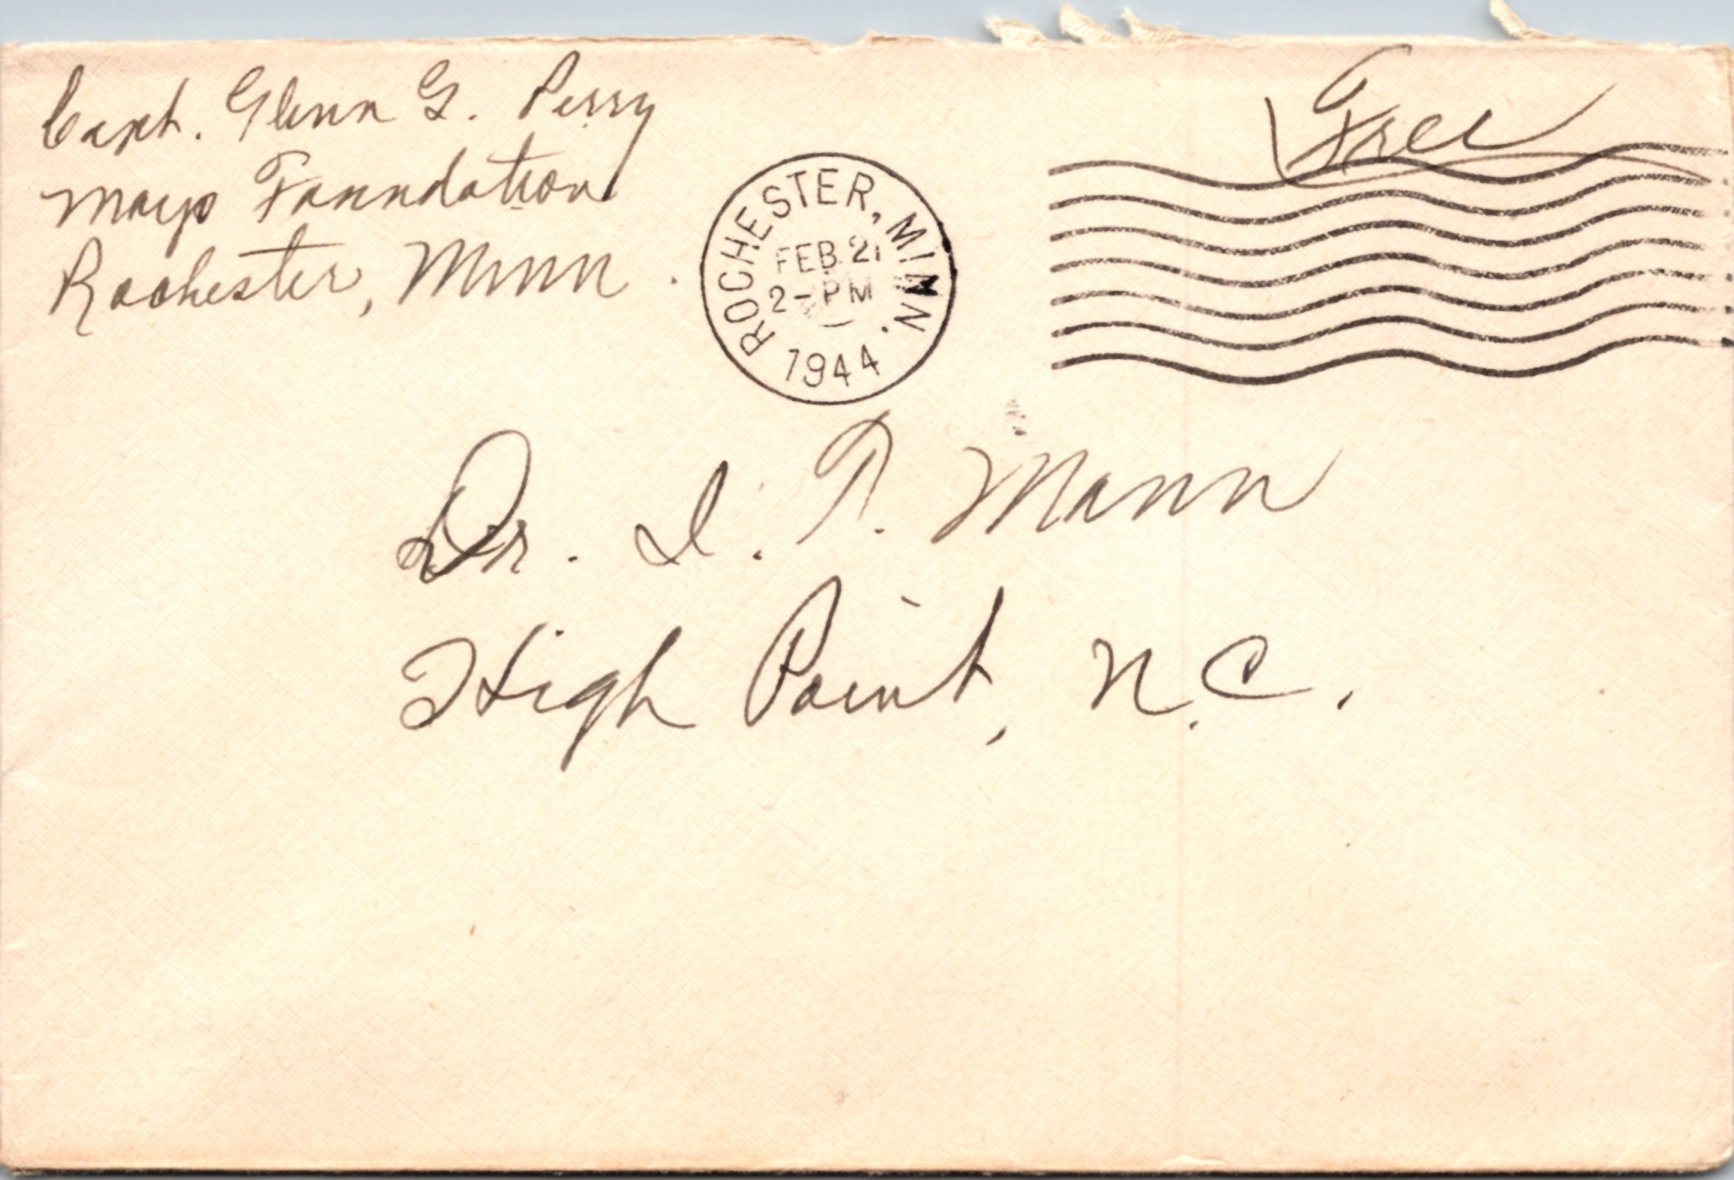 Capt. Glenn G. Perry
Mayo Foundation
Rochester, Minn.
Free
ROCHESTER, MINN.
FEB 21
2-PM
1944
Dr. I. T. Mann
High Point, N.C.